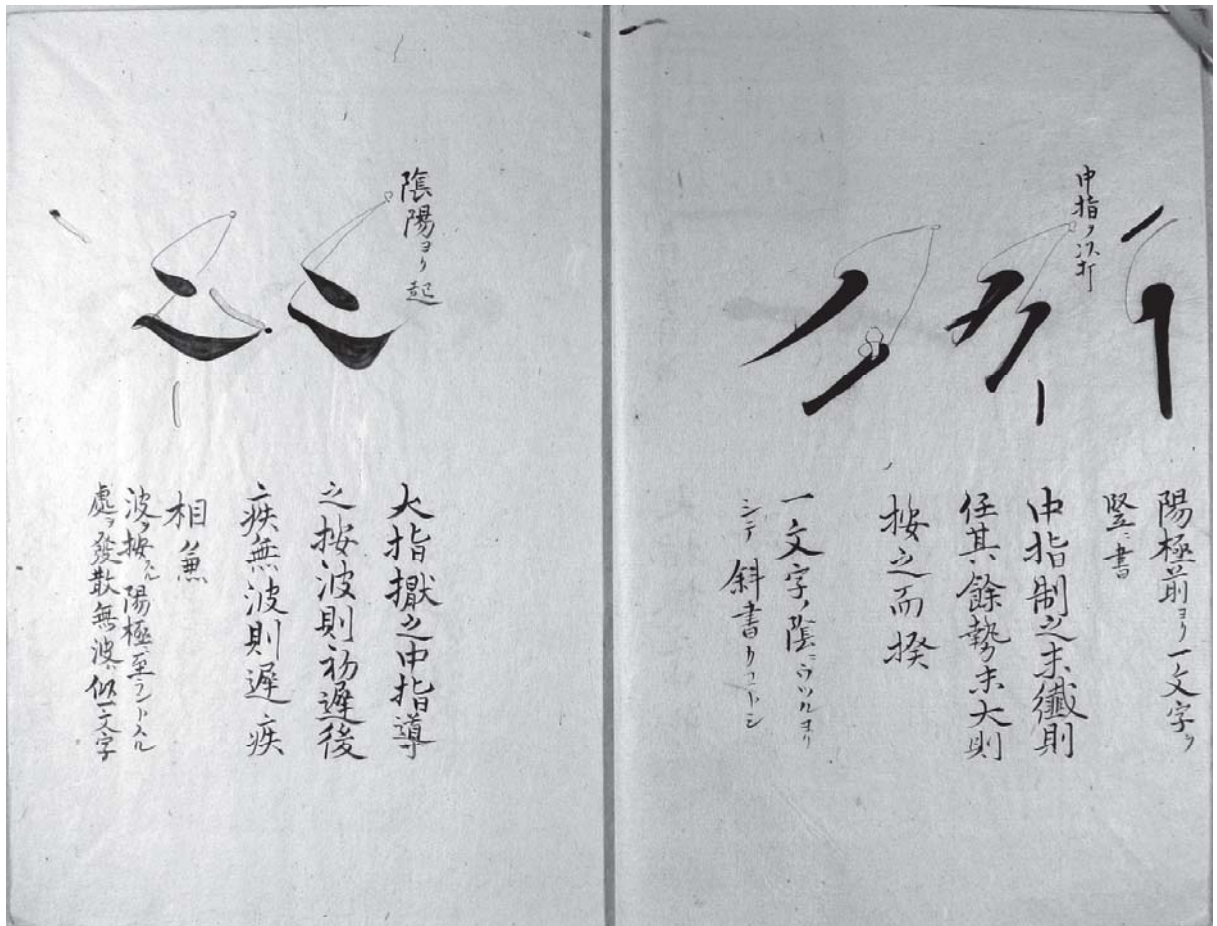 中指ノ次打
陽極前ヨリ一文字ヲ
竪ニ書
中指制之末纎則
任其餘勢末大則
按之而揆
一文字ノ陰ニウツルヨリ
シテ斜書クコトシ
陰陽ヨリ起
大指擫之中指導
之按波則初遅後
疾無波則遅疾
相兼
波ヲ按スルハ陽極ニ至ラントスル
處ヲ發散無波ハ似一文字